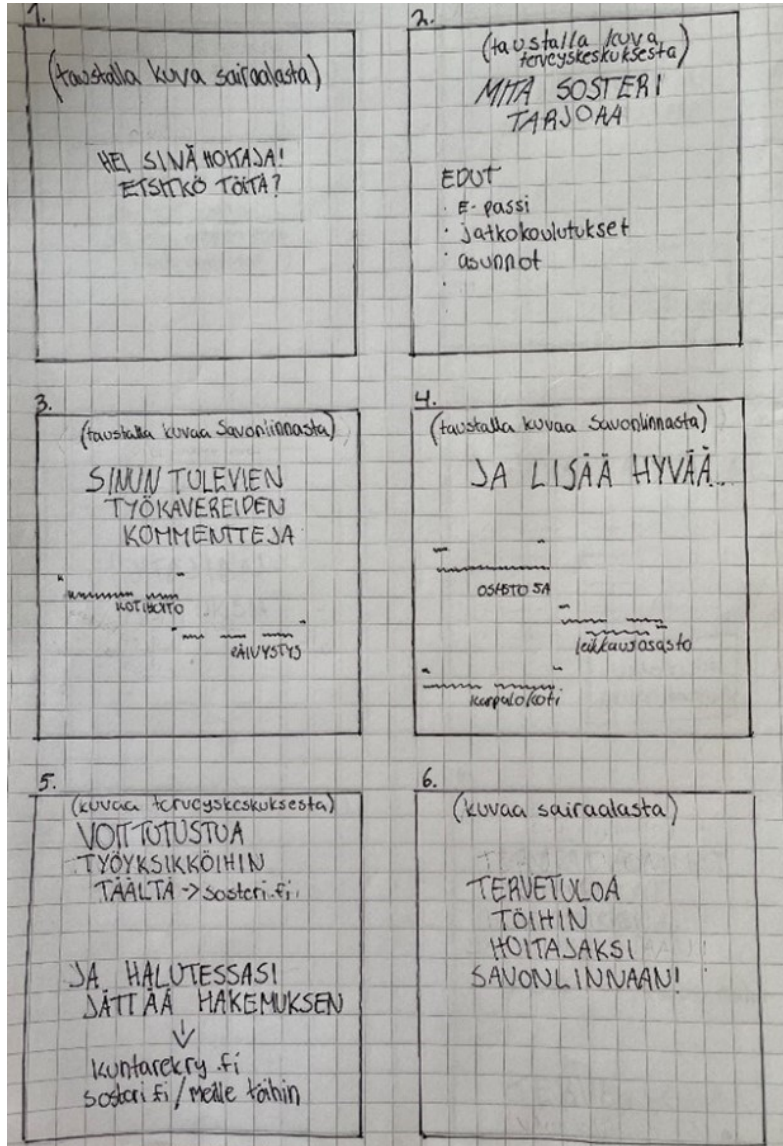 1.
(taustalla kuva sairaalasta)
HEI SINÄ HOITAJA!
ETSITKÖ TÖITÄ?
2.
(taustalla kuva
terveyskeskuksesta)
MITÄ SOSTERI
TARJOAA
EDUT
· E-passi
· jatkokoulutukset
· asunnot
·
3.
(taustalla kuvaa Savonlinnasta)
SINUN TULEVIEN
TYÖKAVEREIDEN
KOMMENTTEJA
KOTIHOITO
PÄIVYSTYS
4.
(taustalla kuvaa Savonlinnasta)
JA LISÄÄ HYVÄÄ...
OSASTO 5A
leikkausosasto
Karpalokoti
5.
(kuvaa terveyskeskuksesta)
VOIT TUTUSTUA
TYÖYKSIKKÖIHIN
TÄÄLTÄ -> sosteri.fi
JA HALUTESSASI
JÄTTÄÄ HAKEMUKSEN
↓
kuntarekry.fi
sosteri.fi/meille töihin
6.
(kuvaa sairaalasta)
TERVETULOA
TÖIHIN
HOITAJAKSI
SAVONLINNAAN!